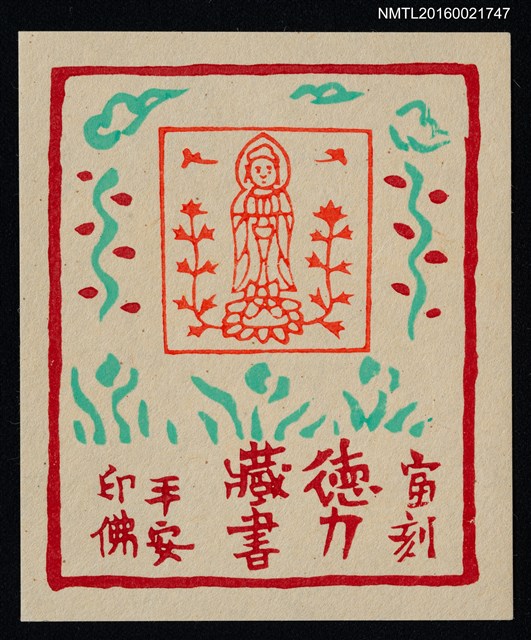 NMTL20160021747
富刻
徳力
藏書
平安
印佛